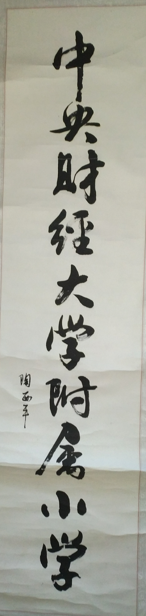 中央财經大学附属小学
陶西平